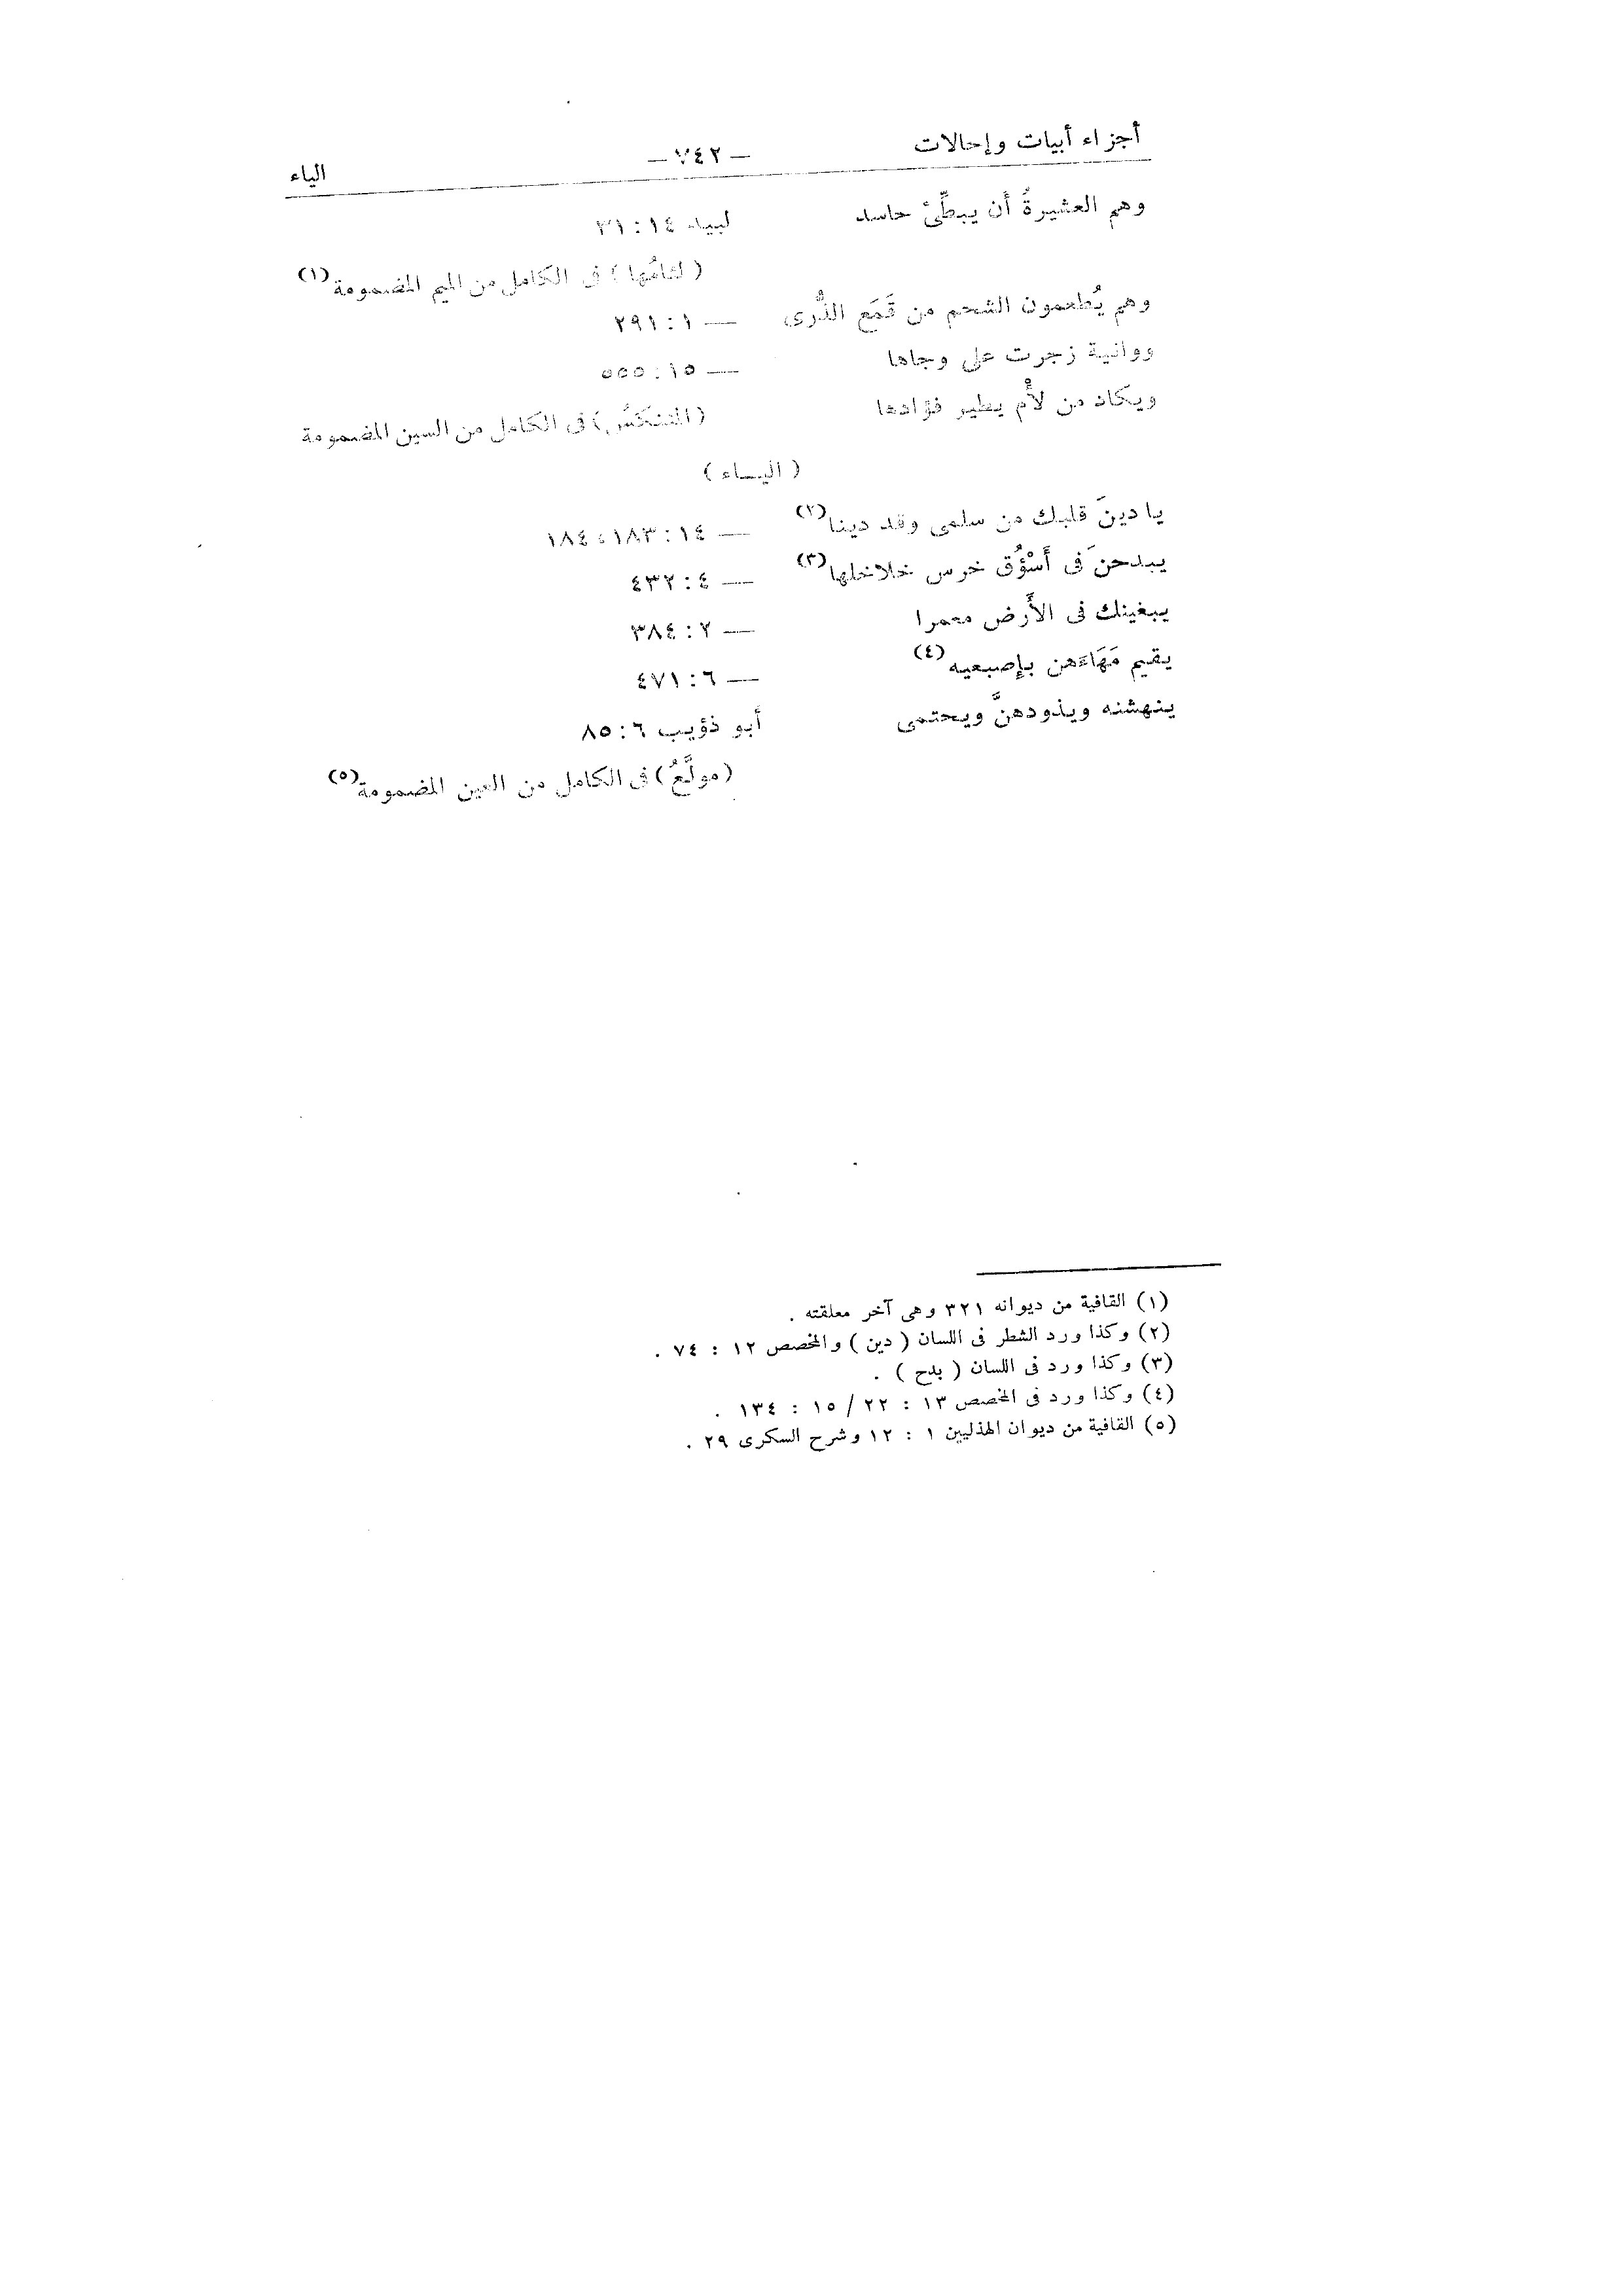 أجزاء أبيات وإحالات — ٧٤٢ — الياء
وهم العشيرةُ أن يبطِّئْ حاسد لبيد ١٤ : ٣١
( لئامُها ) فى الكامل من الميم المضمومة (١)
وهم يُطعمون الشحم من قَمَع الذُّرى — ١ : ٢٩١
ووانية زجرت على وجاها — ١٥ : ٥٥٥
ويكاد من لأْم يطير فؤادها ( المتنكسُ ) فى الكامل من السين المضمومة
( اليـاء )
يا دينَ قلبك من سلمى وقد دينا (٢) — ١٤ : ١٨٣ ، ١٨٤
يبدحنَ فى أَسْؤُق خرس خلاخلها (٣) — ٤ : ٤٣٢
يبغينك فى الأَرض معمرا — ٢ : ٣٨٤
يقيم مَهَاءَهن بإصبعيه (٤) — ٦ : ٤٧١
ينهشنه ويذودهنَّ ويحتمى أبو ذؤيب ٦ : ٨٥
( مولَّعُ ) فى الكامل من العين المضمومة (٥)
(١) القافية من ديوانه ٣٢١ وهى آخر معلقته .
(٢) وكذا ورد الشطر فى اللسان ( دين ) والمخصص ١٢ : ٧٤ .
(٣) وكذا ورد فى اللسان ( بدح ) .
(٤) وكذا ورد فى المخصص ١٣ : ٢٢ / ١٥ : ١٣٤ .
(٥) القافية من ديوان الهذليين ١ : ١٢ وشرح السكرى ٢٩ .